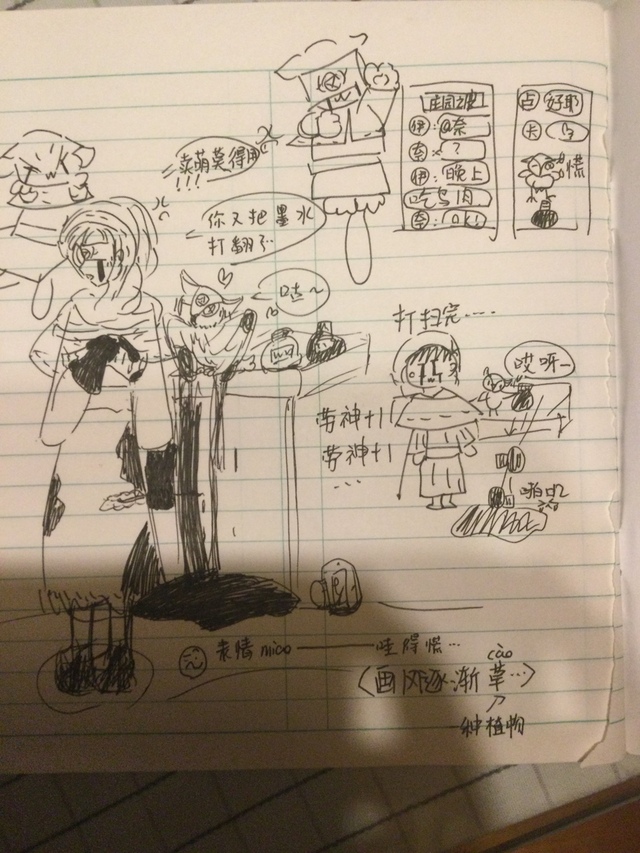 卖萌莫得用
!!!
你又把墨水
打翻了
哇~
伊:@奈
奈:?
伊:晚上
吃鸟肉
奈:OK!
占 好耶
卡 鸟
慌
打扫完····
哎呀~
劳神+1
劳神+1
...
啪叽
表情nico——哇得慌···
(画风逐渐草(cǎo)···)
一种植物